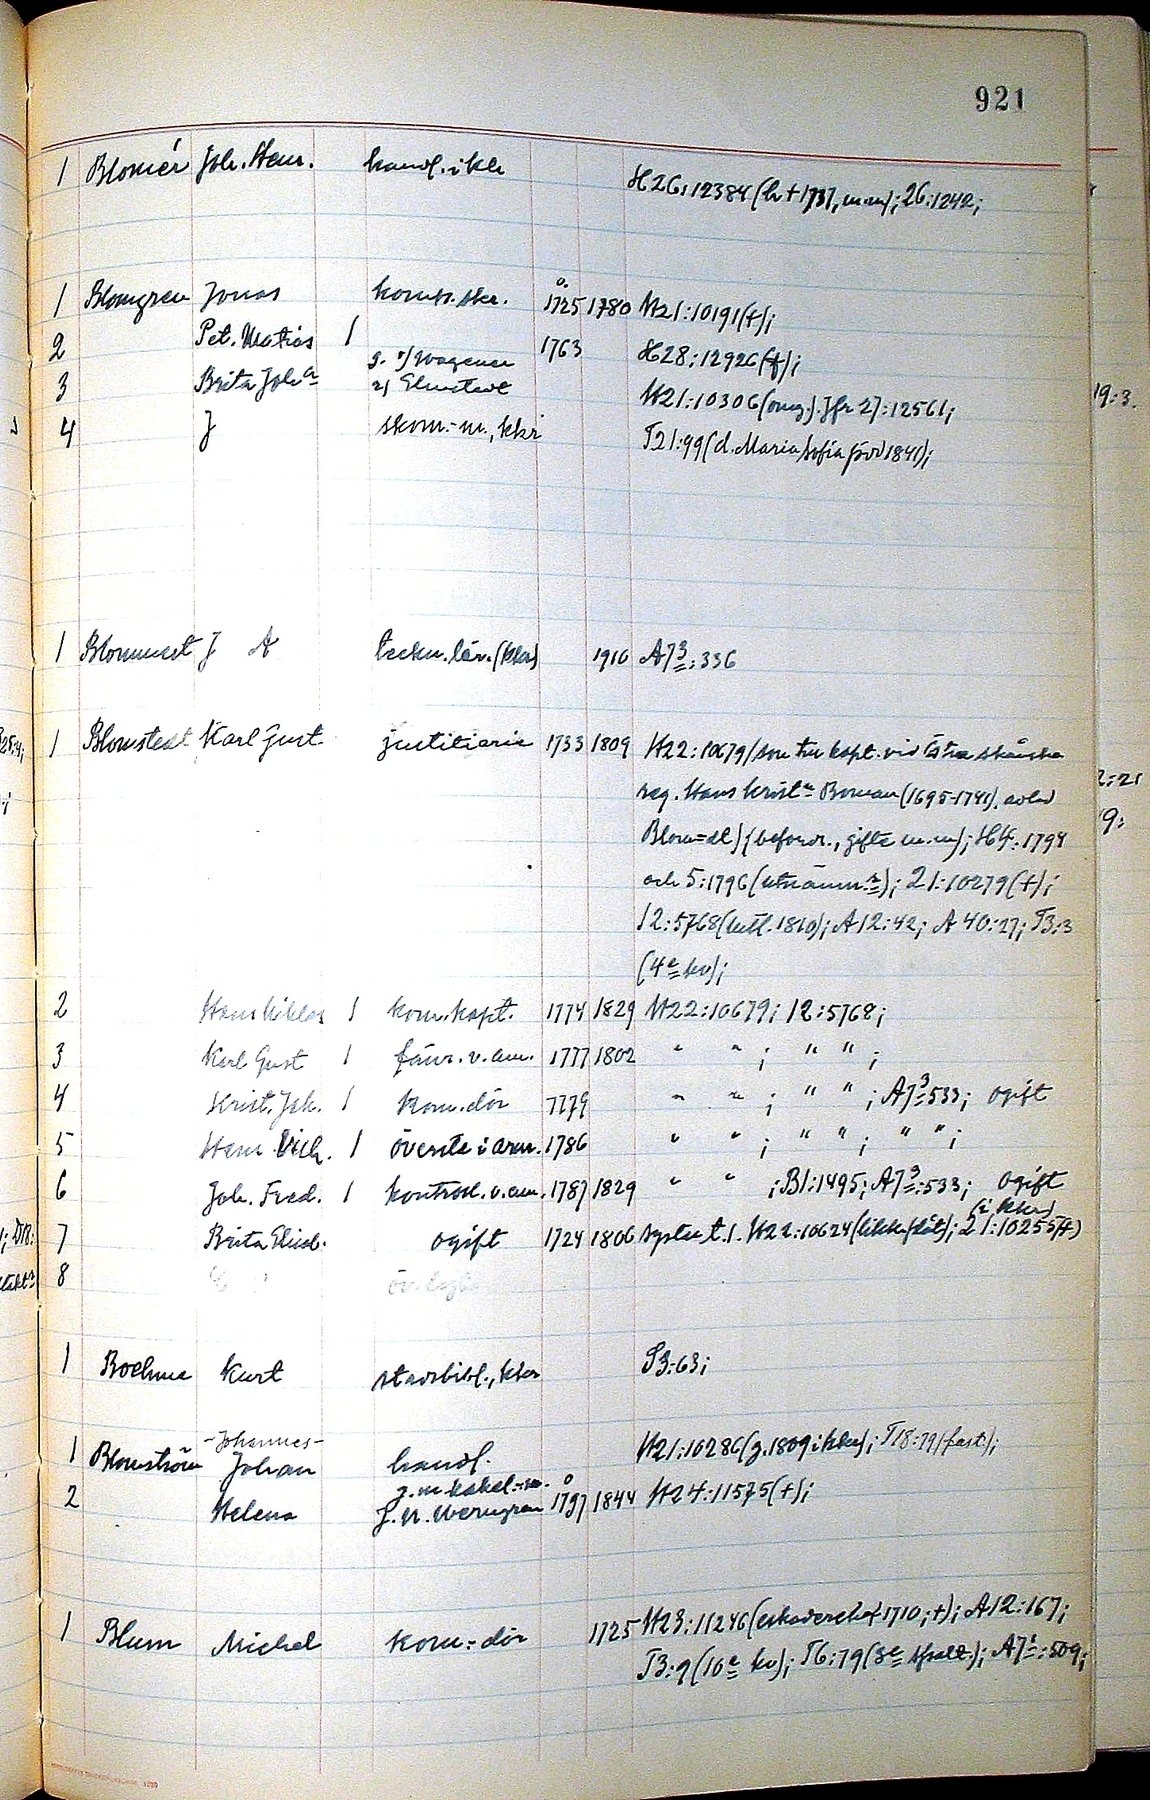 921
1 Blomér Joh. Henr. handl. i kkr H26:12384 (h. +1737, m.m); 26:1242;
1 Blomgren Jonas komm.skr. ö. 1725 1780 H21:10191(+);
2 Pet. Matias 1 1763 H28:12926(+);
3 Brita Joh:a g. 1) Wagener 2) Elmstedt H21:10306 (omg.). Jfr 27:12561;
4 J skom.-m., kkr T21:99 (d. Maria Sofia född 1841);
1 J A teckn.lär. (kkr) 1910 A7 3:336
1 Blomstedt Karl Gust. justitiarie 1733 1809 H22:10679 (son t. kapt. vid
reg. Hans Krist:n Boman (1695-1741), adlad
Blom=dt) (beford., gifte m.m); H4:1794
och 5:1796 (utnämn:r); 21:10279(+);
12:5768 (lutl. 1810); A12:42; A 40:27; T3:3
(4e kv);
2 Hans Niklas 1 kom.kapt. 1774 1829 H22:10679; 12:5768;
3 Karl Gust 1 fänr. v. am. 1777 1802 " " ; " " ;
4 Krist. Joh. 1 kom.dör 1779 " " ; " " ; A7 3:533; ogift
5 Hans Vilh. 1 överste i arm. 1786 " " ; " " ; " " ;
6 Joh. Fred. 1 kontroll. v. am. 1787 1829 " " ; B1:1495; A7 3:533; ogift
(i kkr)
7 Brita Elisab. ogift 1724 1806 syster t. 1. H22:10624 ; 21:10255(+)
8
1 Boehme Kurt stadsbibl., kkr T3:63;
-Johannes-
1 Blomström Johan handl. H21:10286 (g. 1809 i kkr); T18:79 (fast);
g.m. kakel.-m.
2 Helena J. N. Werngren ö 1797 1844 H24:11575(+);
1 Blum Michel kom:dör 1725 H23:11246 (eskaderchef 1710; +); A12:167;
T3:9 (16e kv); T6:79 (3e ); A7 1:509;